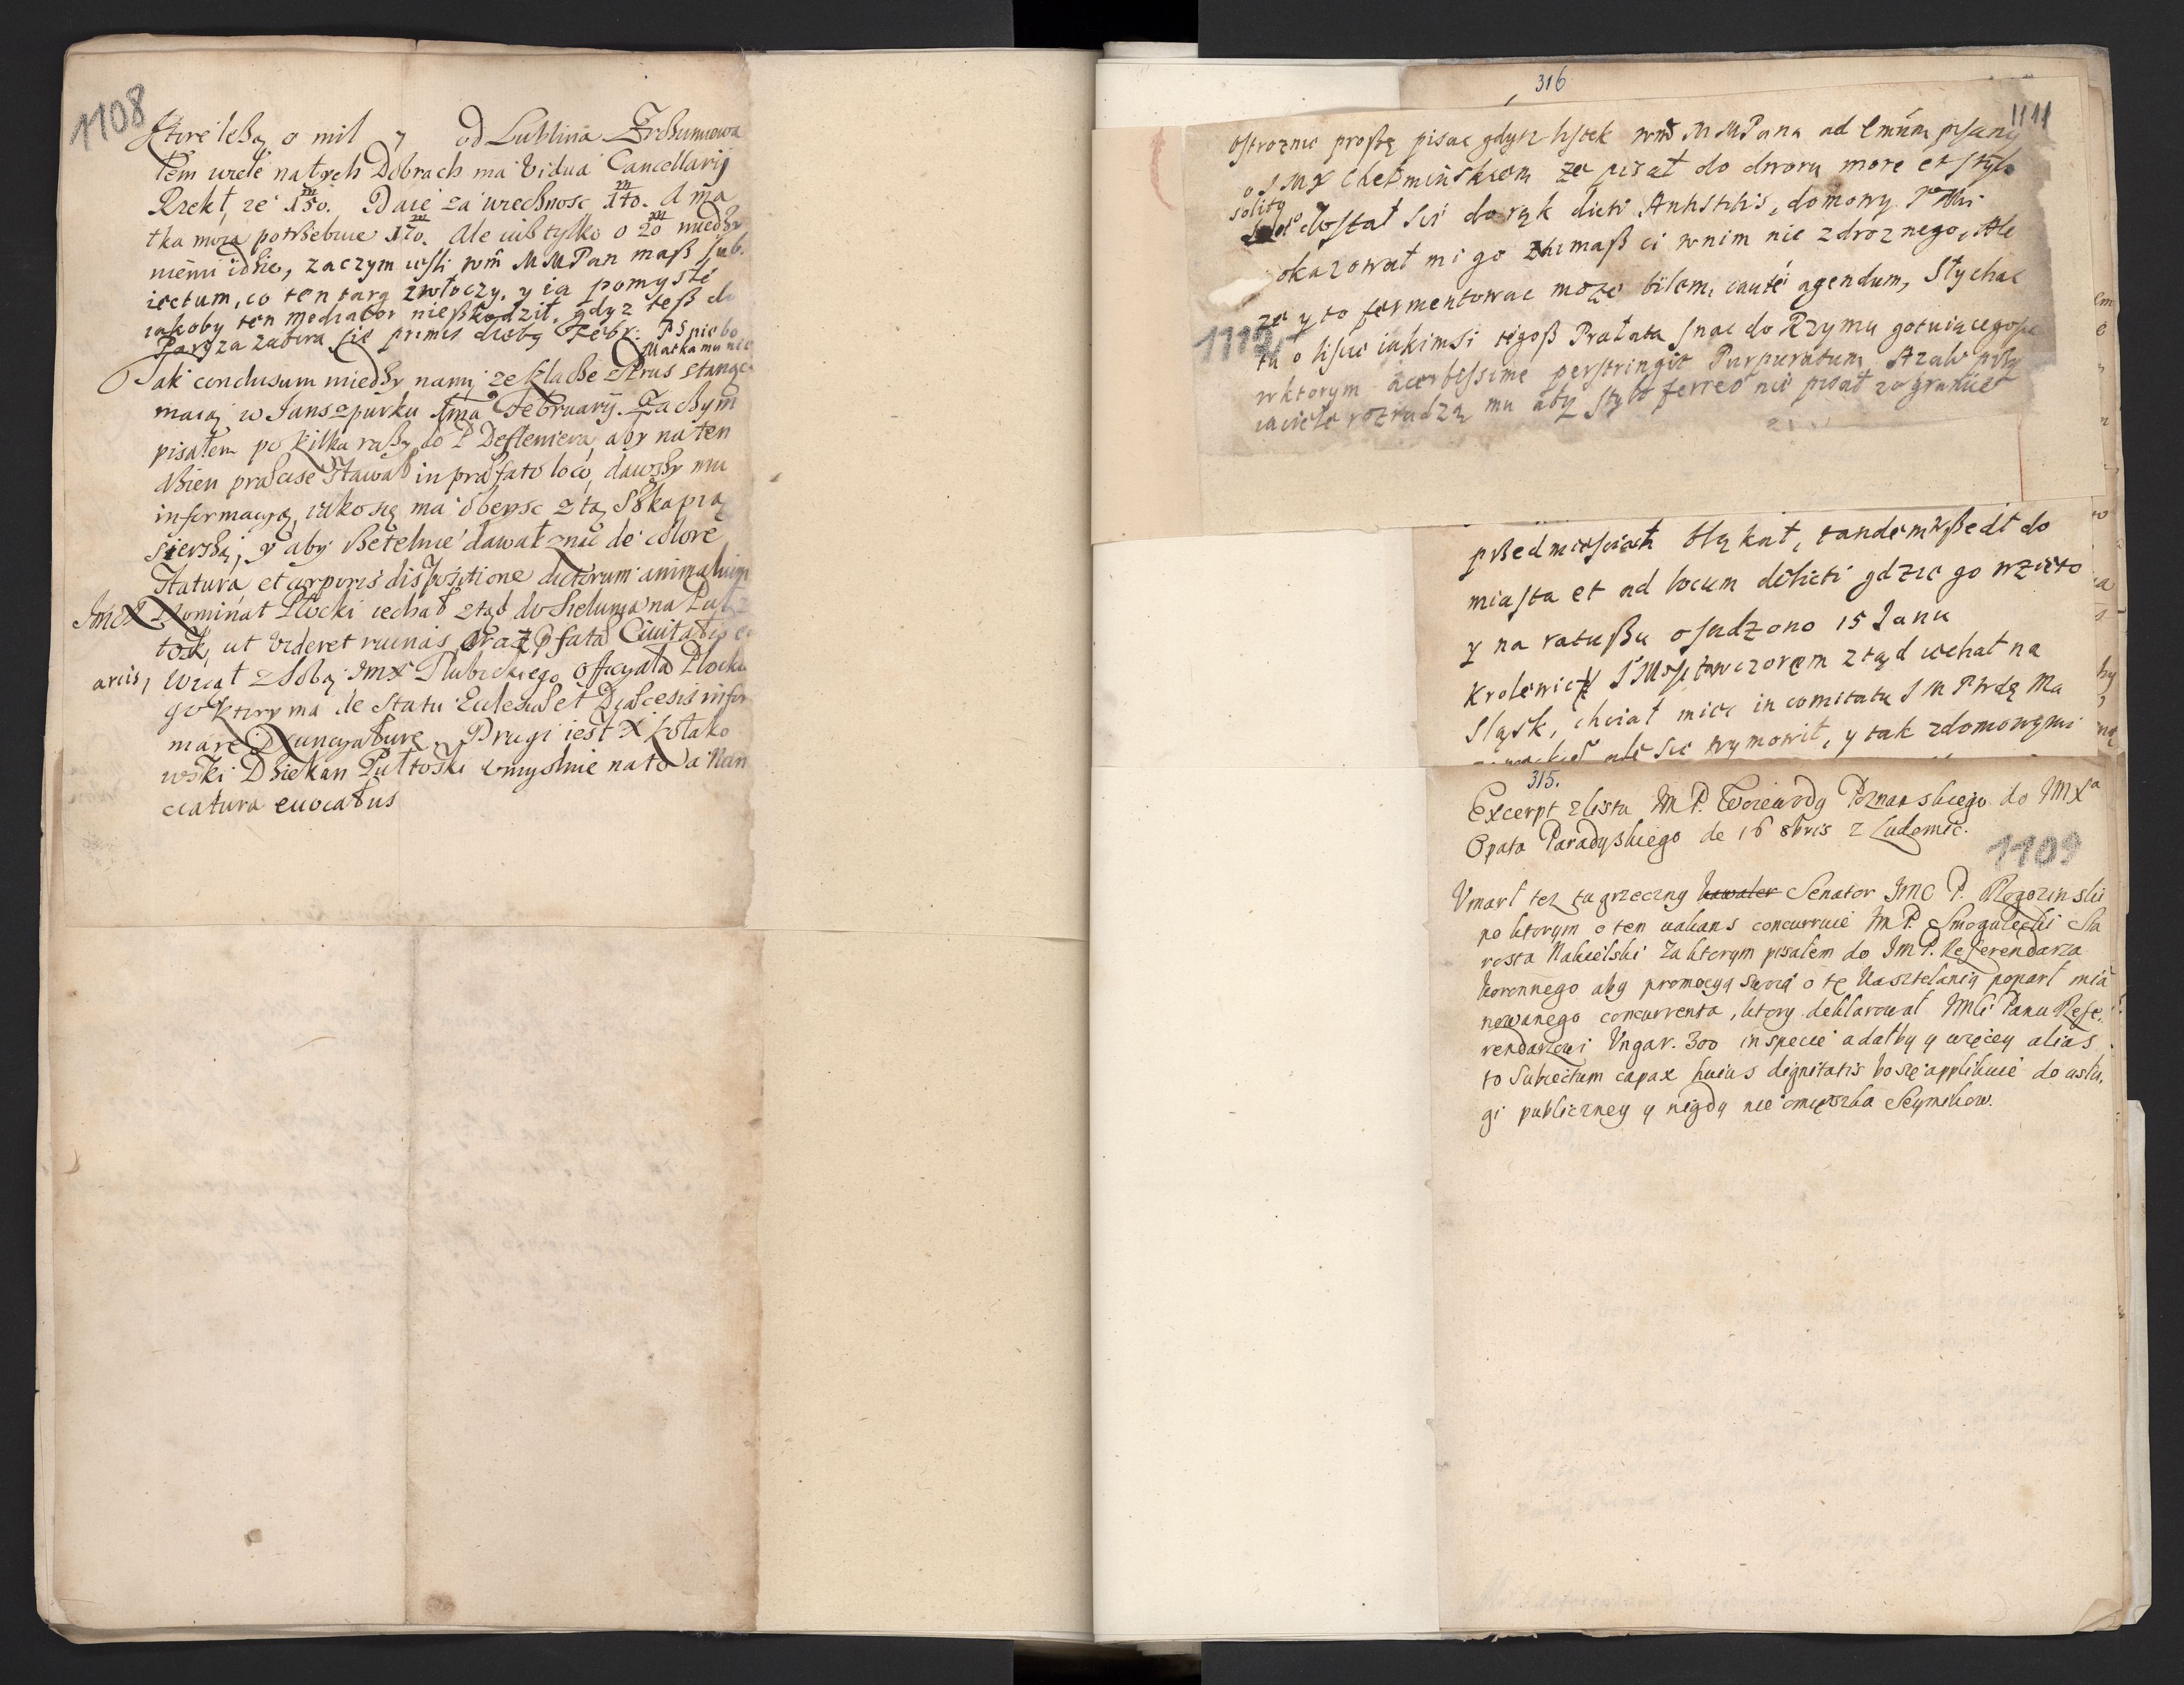 1108
Ktore leßą o mil 7 od Lublina
łem wiele na tych Dobrach ma Vidua Cancellarij
Rzekł, ze 150. Daie za wiecznosc 140. A
tka moia potrzebuie 170. Ale iuß tylko o 20 miedzy
niemi idzie, zaczym ieśli wm MMPan maß sub-
iectum, co ten targ zwłoczy, y ia pomyśle
iakoby ten mediator nießkodził, gdyz teß do
Paryza zabira sie primis diebus Febr:
Matka mu nie
Tak conclusum miedzy nami, ze Klacze z Prus stanąc
maią w Jansepurku 1ma February. Zaczym
pisałem po kilka razy do P. aby na ten
dzien praecise stawał in praefato loco, dawszy mu
informacyą, iako się ma obeysc z tą
y aby dawał znac de colore
statura et corporis dispositione dictorum animalium
Imc X Nominat Płocki iechał ztąd do na Puł
tosk, ut videret ruinas Civitatis
arcis, Wziął z sobą ImX Płubickiego Officyała Płockie
go ktory ma de statu Ecclesiae et Dyaecesis infor
mare Nuncyaturę. Drugi iest X
wski Dziekan Pułtoski umyslnie na to a Nun
ciatura evocatus
316
1111
ostroznie proßę pisac gdyz listek wm MMPana ad pisany
o I MX Chełminskiem ze pisał do dworu more et stylo
solito dostał sie do rąk dicti Antistitis, domowy
okazował mi go maß ci w nim nic zdroznego, Ale
ze y to fermentowac moze bilem, caute agendum, Słychac
1110
tu o liscie iakimsi tegoß Prałata snac do Rzymu gotuiącego się
w ktorym acerbissime perstringit Purpuratum,
iaciele rozradzą mu aby stylo ferreo nie pisał za granicę
przedmiesciach błąkał, tandem wßedł do
miasta et ad locum delicti gdzie go wzięto
y na ratußu osądzono 15 Janu
Krolewicz I M ztąd iechał na
Sląsk, chciał miec in comitatu I M P Ma
ale sie wymowił, y tak z domowymi
315.
Excerpt z listu IM P. Woiewody Poznanskiego do IMXa
Opata Paradyskiego de 16 8bris z Ludomic.
1109
Vmarł tez tu grzeczny kawaler Senator Imc P. Rogozinski
po ktorym o ten vakans concurruie IM P. Smogulecki Sta
rosta Nakielski Za ktorym pisałem do Im P. Referendarza
koronnego aby promocyą swoią o tę Kasztelanią poparł mia
nowanego concurrenta, ktory deklarował IMci Panu Refe-
rendarzowi Vngar. 300 in specie a dałby y więcey alias
to Subiectum capax huius dignitatis bo się applikuie do usłu,
gi publiczney y nigdy nie omięszka Seymikow.